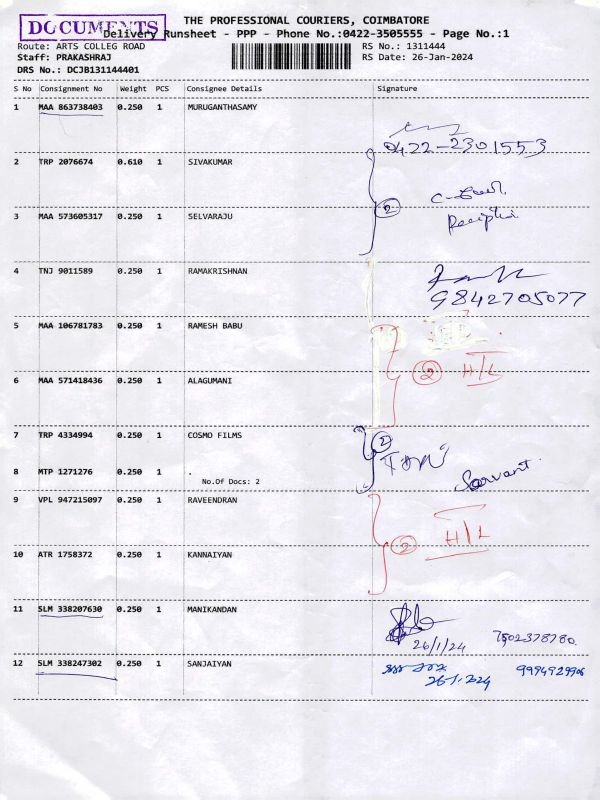 DOCUMENTS
THE PROFESSIONAL COURIERS, COIMBATORE
Delivery Runsheet - PPP - Phone No.:0422-3505555 - Page No.:1
Route: ARTS COLLEG ROAD RS No.: 1311444
Staff: PRAKASHRAJ RS Date: 26-Jan-2024
DRS No.: DCJB131144401
S No Consignment No Weight PCS Consignee Details Signature
1 MAA 863738403 0.250 1 MURUGANTHASAMY
0422-2301553
2 TRP 2076674 0.610 1 SIVAKUMAR
2
3 MAA 573605317 0.250 1 SELVARAJU
4 TNJ 9011589 0.250 1 RAMAKRISHNAN
9842705077
5 MAA 106781783 0.250 1 RAMESH BABU
2 H/L
6 MAA 571418436 0.250 1 ALAGUMANI
7 TRP 4334994 0.250 1 COSMO FILMS
2
8 MTP 1271276 0.250 1 .
No.Of Docs: 2
Servant.
9 VPL 947215097 0.250 1 RAVEENDRAN
2 H/L
10 ATR 1758372 0.250 1 KANNAIYAN
11 SLM 338207630 0.250 1 MANIKANDAN
26/1/24 7502378780.
12 SLM 338247302 0.250 1 SANJAIYAN
26-1-2024 9994929906